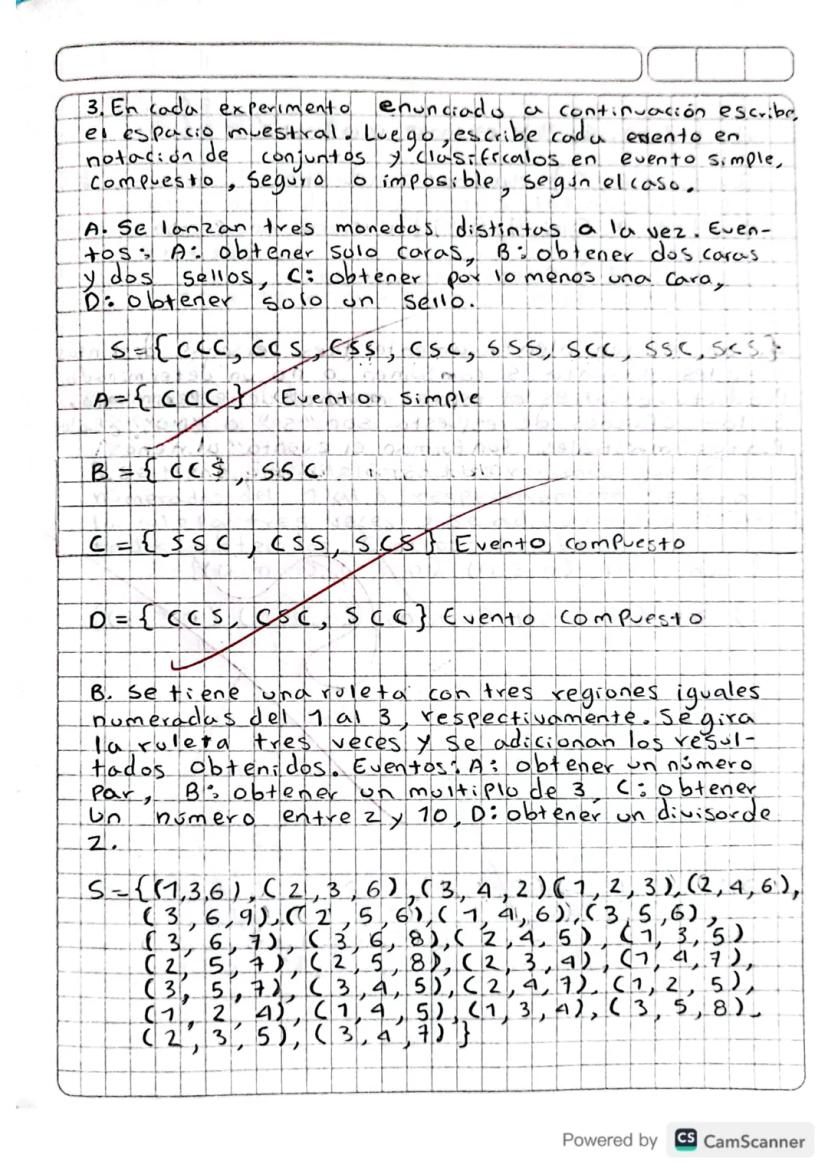 3. En cada experimento enunciado a continuación escribe
el espacio muestral. Luego, escribe cada evento en
notación de conjuntos y clasifícalos en evento simple,
compuesto, seguro o imposible, según el caso.
A. Se lanzan tres monedas distintas a la vez. Even-
tos: A: obtener solo caras, B: obtener dos caras
y dos sellos, C: obtener por lo menos una cara,
D: obtener solo un sello.
S={CCC, CCS, CSS, CSC, SSS, SCC, SSC, SCS}
A={CCC} Evento simple
B={CCS, SSC
C={SSC, CSS, SCS} Evento compuesto
D={CCS, CSC, SCC} Evento compuesto
B. Se tiene una ruleta con tres regiones iguales
numeradas del 1 al 3, respectivamente. Se gira
la ruleta tres veces y se adicionan los resul-
tados obtenidos. Eventos: A: obtener un número
par, B: obtener un multiplo de 3, C: obtener
un número entre 2 y 10, D: obtener un divisor de
2.
S={(1,3,6), (2,3,6), (3,4,2)(1,2,3), (2,4,6),
(3,6,9), (2,5,6), (1,4,6), (3,5,6),
(3,6,7), (3,6,8), (2,4,5), (1,3,5)
(2,5,7), (2,5,8), (2,3,4), (1,4,7),
(3,5,7), (3,4,5), (2,4,7), (1,2,5),
(1,2,4), (1,4,5), (1,3,4), (3,5,8),
(2,3,5), (3,4,7)}
Powered by CS CamScanner